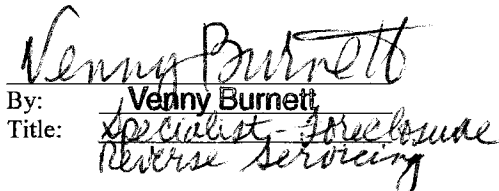 Venny Burnett
By: Venny Burnett
Title: Specialist - Foreclosure
Reverse Servicing